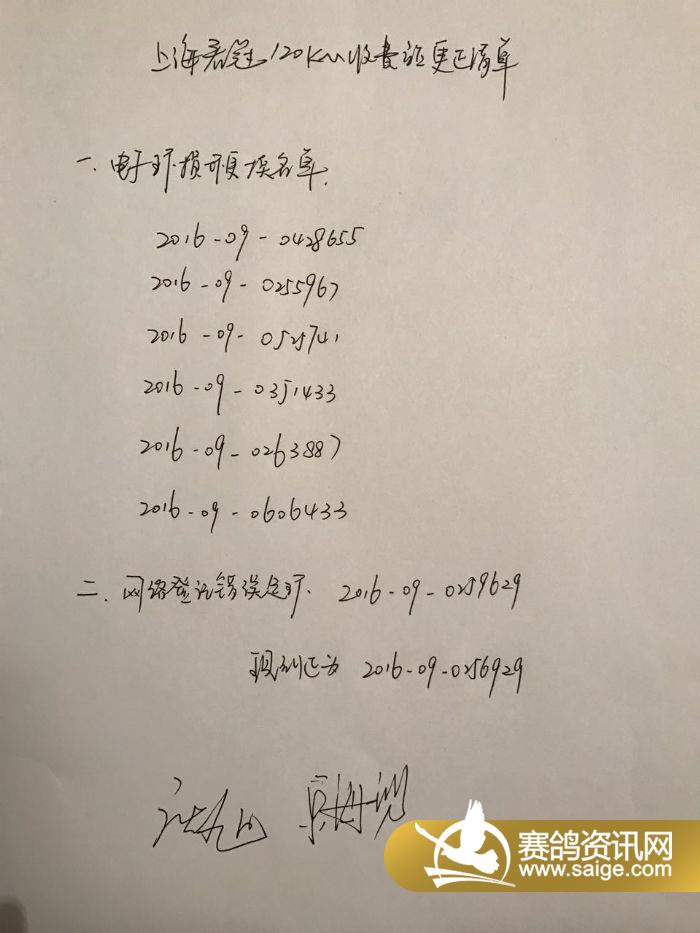 上海君冠120KM收费站更正清单
一、电子环损环更换名单
2016-09-0428655
2016-09-0255967
2016-09-0525741
2016-09-0351433
2016-09-0263887
2016-09-0606433
二、网络登记错误足环、2016-09-0259629
现纠正为 2016-09-0256929
赛鸽资讯网
www.saige.com